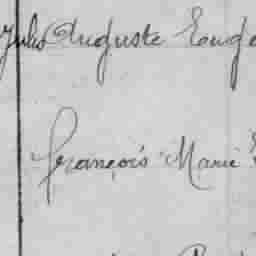 Jules Auguste Eug
François Marie